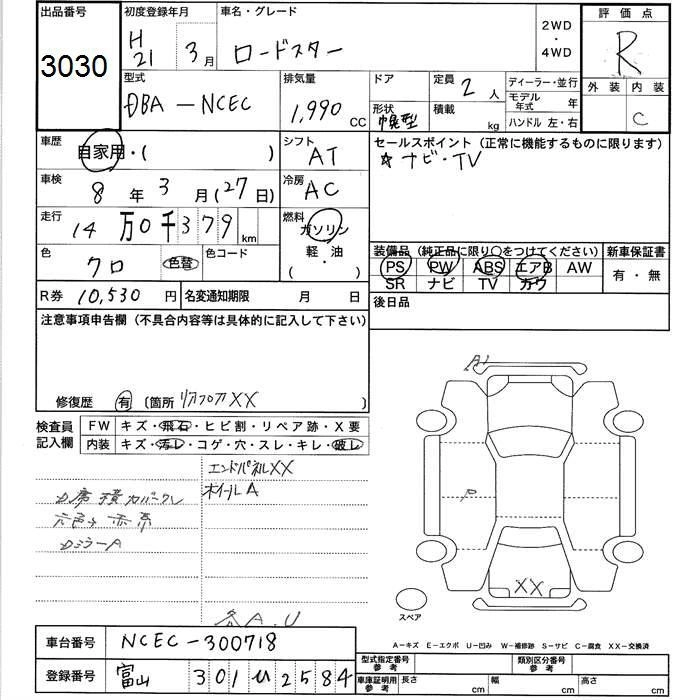 出品番号 初度登録年月 車名・グレード 2WD・4WD 評価点
3030 H21 3月 ロードスター R
型式 排気量 ドア 定員 2人 ディーラー・並行 外装 内装
DBA-NCEC 1,990 CC 形状 積載 kg モデル年式 年 C
ハンドル 左・右
車歴 自家用・( ) シフト AT セールスポイント (正常に機能するものに限ります)
☆ナビ・TV
車検 8年3月(27日) 冷房 AC
走行 14万0千379km 燃料 ガソリン 軽・油 ( ・ )
色 クロ 色替 色コード
装備品 (純正品に限り○をつけてください) 新車保証書
PS PW ABS エアB AW 有・無
SR ナビ TV カワ
R券 10,530円 名変通知期限 月 日 後日品
注意事項申告欄 (不具合内容等は具体的に記入して下さい)
修復歴 有 〔箇所 リアフロアXX 〕
検査員記入欄 FW キズ・飛石・ヒビ割・リペア跡・X要
内装 キズ・汚レ・コゲ・穴・スレ・キレ・破レ
エンドパネルXX
ホイールA
A1
P
XX
スペア
A-キズ E-エクボ U-凹み W-補修跡 S-サビ C-腐食 XX-交換済
車台番号 NCEC-300718
登録番号 富山 301 2584
型式指定番号 参考 類別区分番号 参考
車庫証明用 参考 長さ cm 幅 cm 高さ cm